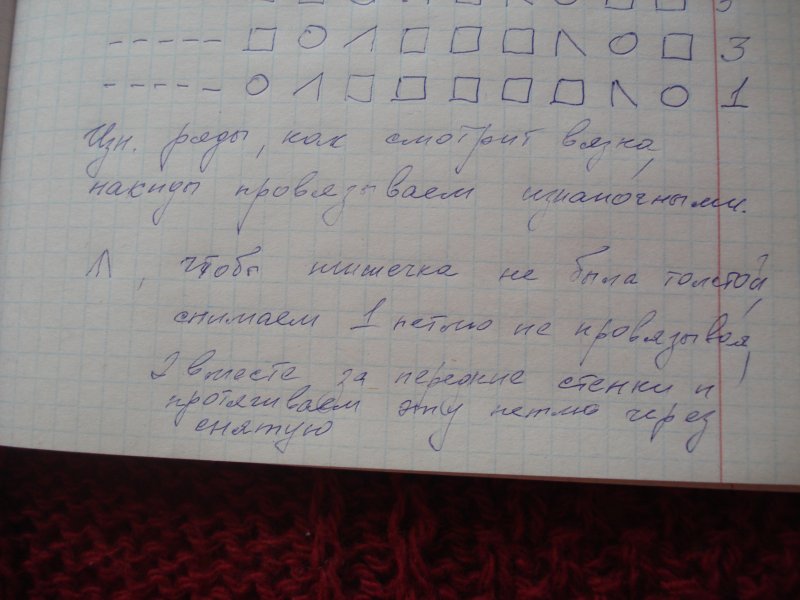 5
----- □ ○ ⋀ □ □ □ ⋀ ○ □ 3
----- ○ ⋀ □ □ □ □ □ ⋀ ○ 1
Изн. ряды, как смотрит вязка,
накиды провязываем изнаночными.
чтобы шишечка не была толстой,
снимаем 1 петлю не провязывая,
2 вместе за передние стенки и
протягиваем эту петлю через
снятую